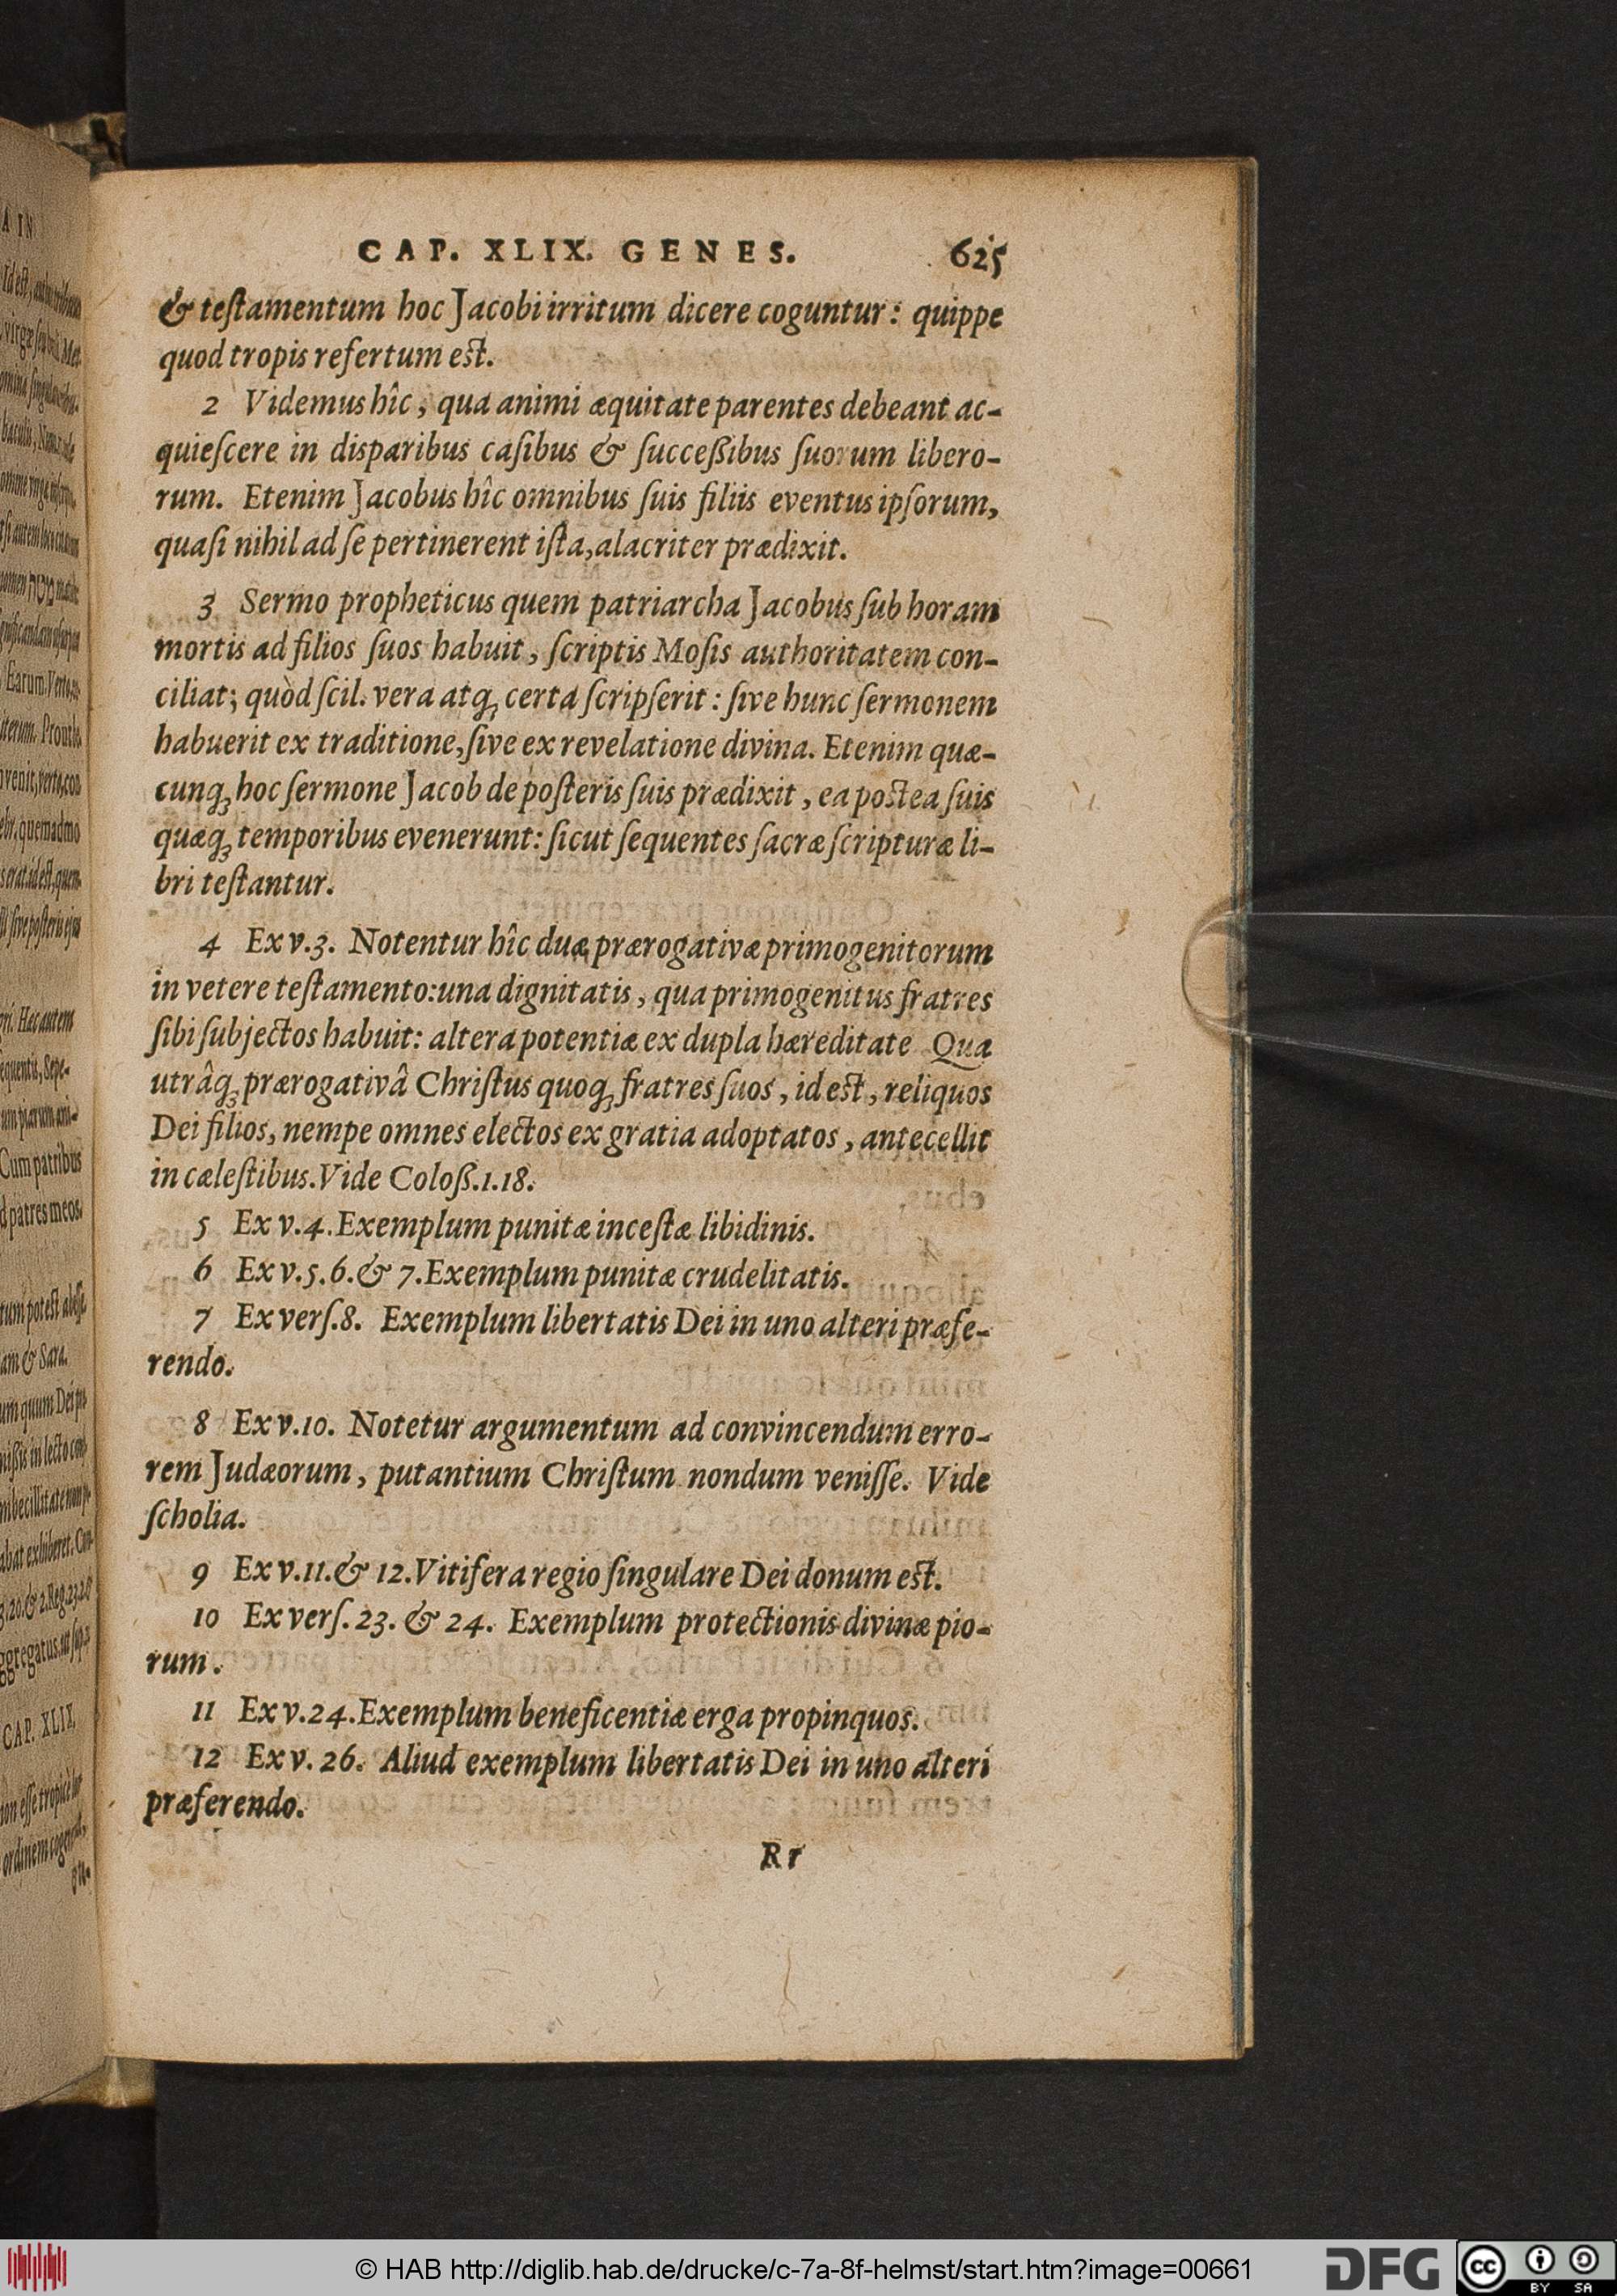 CAP. XLIX. GENES. 625
& teſtamentum hoc Jacobi irritum dicere coguntur: quippe
quod tropis refertum est.
2 Videmus hîc, qua animi æquitate parentes debeant ac-
quieſcere in disparibus caſibus & ſucceßibus ſuorum libero-
rum. Etenim Jacobus hîc omnibus ſuis filiis eventus ipſorum,
quaſi nihil ad ſe pertinerent iſta, alacriter prædixit.
3 Sermo propheticus quem patriarcha Jacobus ſub horam
mortis ad filios ſuos habuit, ſcriptis Moſis authoritatem con-
ciliat; quòd ſcil. vera atq; certa ſcripſerit: ſive hunc ſermonem
habuerit ex traditione, ſive ex revelatione divina. Etenim quæ-
cunq; hoc ſermone Jacob de poſteris ſuis prædixit, ea postea ſuis
quæq; temporibus evenerunt: ſicut ſequentes ſacræ ſcripturæ li-
bri teſtantur.
4 Ex v.3. Notentur hîc duæ prærogativæ primogenitorum
in vetere teſtamento: una dignitatis, qua primogenitus fratres
ſibi ſubjectos habuit: altera potentiæ ex dupla hæreditate Qua
utrâq; prærogativâ Chriſtus quoq; fratres ſuos, id est, reliquos
Dei filios, nempe omnes electos ex gratia adoptatos, antecellit
in cæleſtibus. Vide Coloß.1.18.
5 Ex v.4. Exemplum punitæ inceſtæ libidinis.
6 Ex v.5.6.& 7. Exemplum punitæ crudelitatis.
7 Ex verſ.8. Exemplum libertatis Dei in uno alteri præfe-
rendo.
8 Ex v.10. Notetur argumentum ad convincendum erro-
rem Judæorum, putantium Chriſtum nondum veniſſe. Vide
ſcholia.
9 Ex v.11.& 12. Vitifera regio ſingulare Dei donum est.
10 Ex verſ. 23. & 24. Exemplum protectionis divinæ pio-
rum.
11 Ex v.24. Exemplum beneficentiæ erga propinquos.
12 Ex v. 26. Aliud exemplum libertatis Dei in uno alteri
præferendo.
Rr
CAP. XLIX
Cum patribus
d patres meos.
am & Sara.
© HAB http://diglib.hab.de/drucke/c-7a-8f-helmst/start.htm?image=00661
DFG
cc BY SA